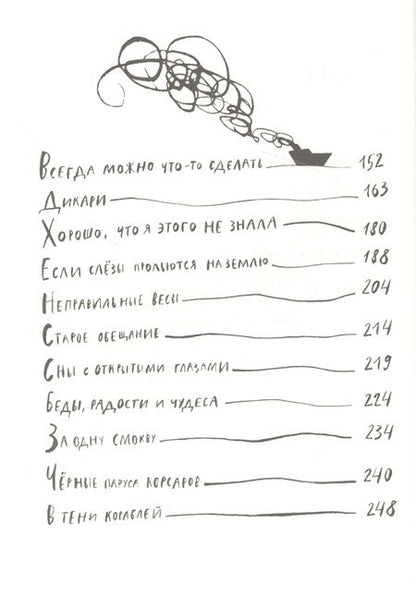 Всегда можно что-то сделать 152
Дикари 163
Хорошо, что я этого не знала 180
Если слёзы прольются на землю 188
Неправильные весы 204
Старое обещание 214
Сны с открытыми глазами 219
Беды, радости и чудеса 224
За одну смокву 234
Чёрные паруса корсаров 240
В тени кораблей 248